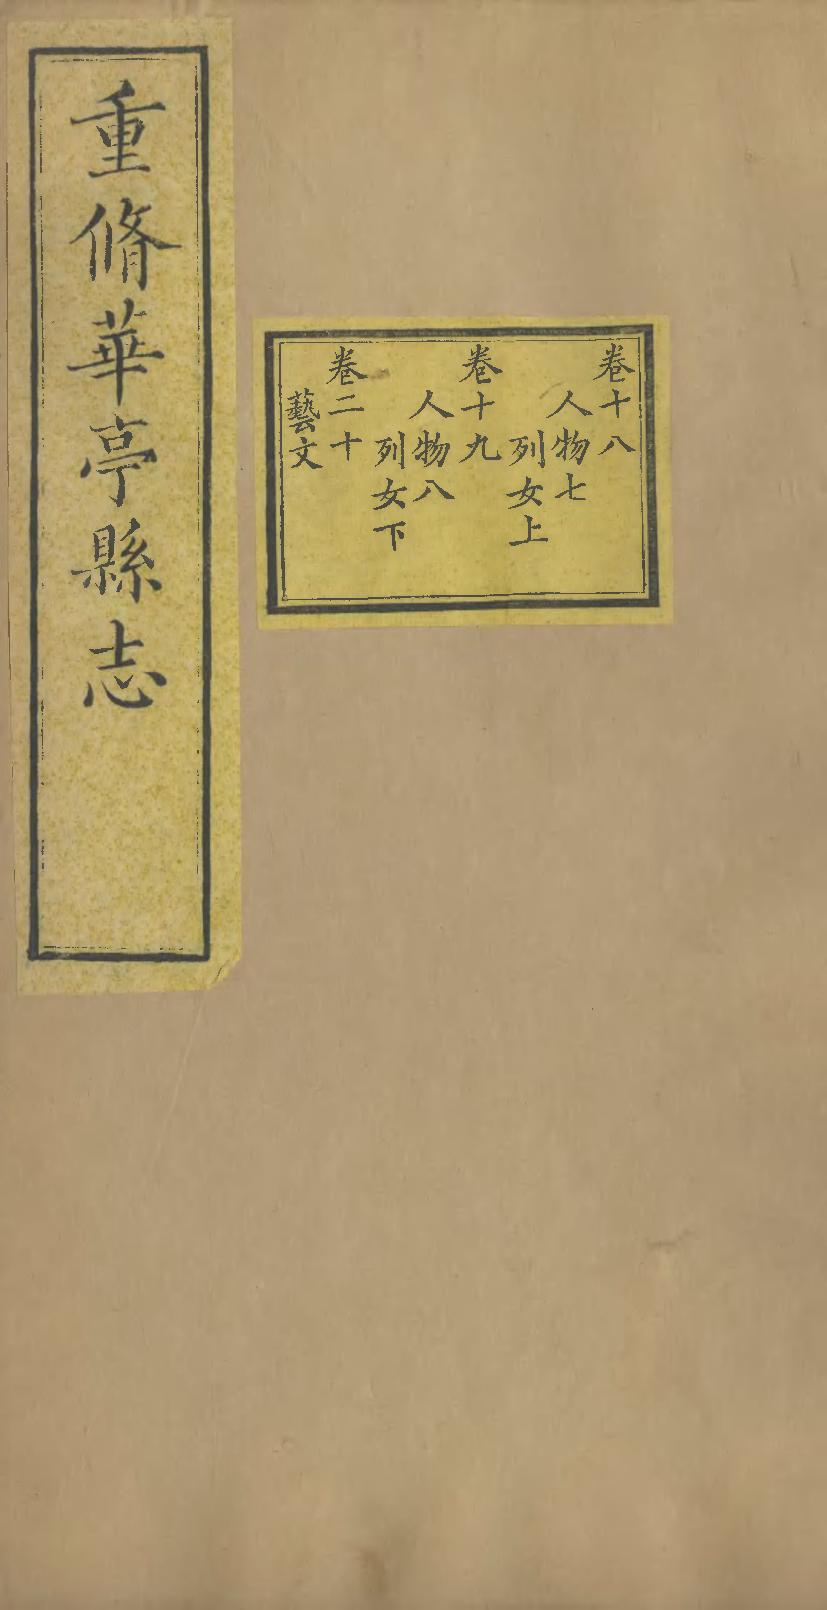 重脩華亭縣志
卷十八
人物七
列女上
卷十九
人物八
列女下
卷二十
藝文